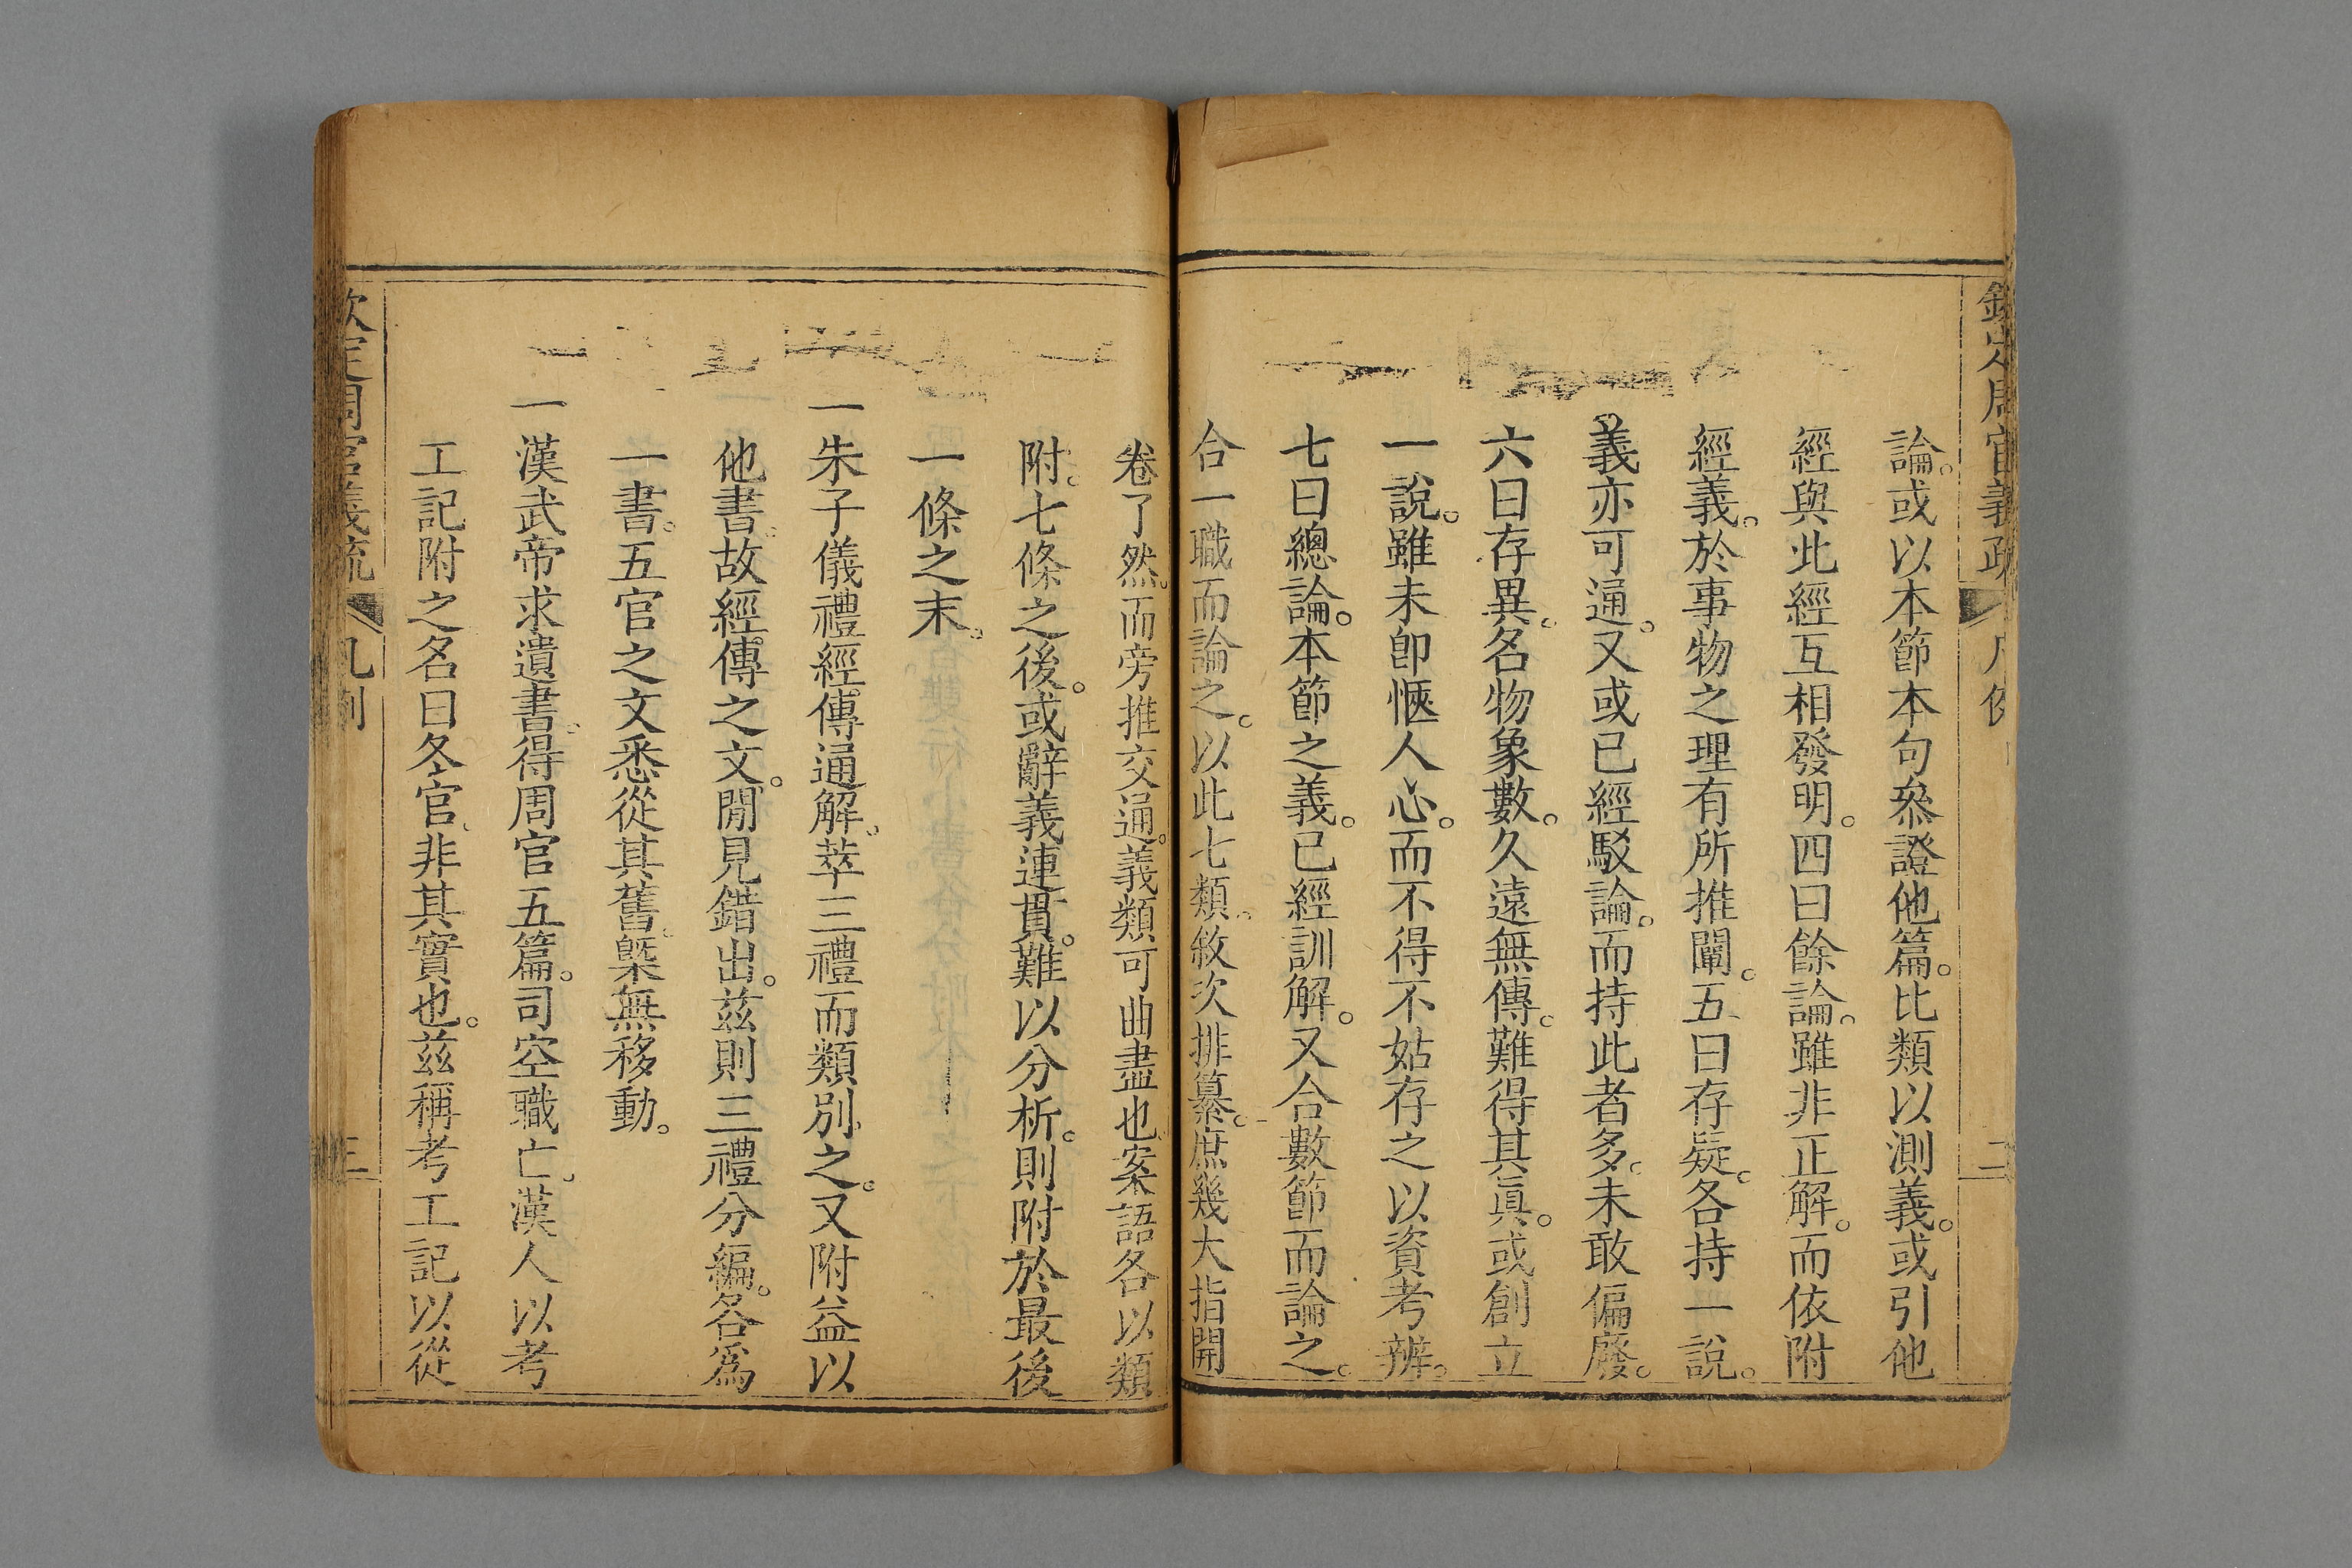 欽定周官義疏 凡例 二
論。或以本節本句參證他篇。比類以測義。或引他
經與此經互相發明。四曰餘論。雖非正解。而依附
經義。於事物之理有所推闡。五曰存疑。各持一說。
義亦可通。又或已經駁論。而持此者多。未敢偏廢。
六曰存異。名物象數。久遠無傳。難得其眞。或創立
一說。雖未卽愜人心。而不得不姑存之以資考辨。
七曰總論。本節之義。已經訓解。又合數節而論之。
合一職而論之。以此七類。敘次排纂。庶幾大指開
卷了然。而旁推交通。義類可曲盡也。案語各以類
附。七條之後。或辭義連貫。難以分析。則附於最後
一條之末。
一朱子儀禮經傳通解。萃三禮而類別之。又附益以
他書。故經傳之文。閒見錯出。茲則三禮分編。各爲
一書。五官之文悉從其舊。槩無移動。
一漢武帝求遺書。得周官五篇。司空職亡。漢人以考
工記附之名曰冬官。非其實也。茲稱考工記以從
欽定周官義疏 凡例 三